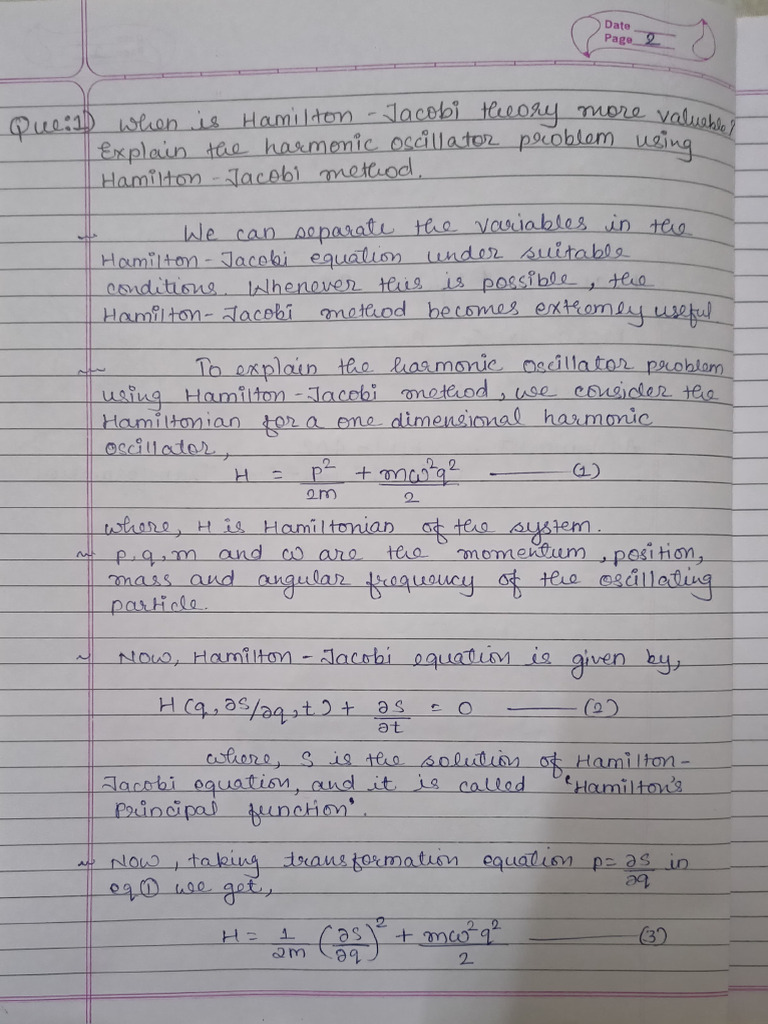 Date
Page 2
Que:1) When is Hamilton-Jacobi theory more valuable?
Explain the harmonic oscillator problem using
Hamilton-Jacobi method.
We can separate the variables in the
Hamilton-Jacobi equation under suitable
conditions. Whenever this is possible, the
Hamilton-Jacobi method becomes extremey useful
To explain the harmonic oscillator problem
using Hamilton-Jacobi method, we consider the
Hamiltonian for a one dimensional harmonic
oscillator,
H = p²/2m + mω²q²/2 —— (1)
where, H is Hamiltonian of the system.
~ p, q, m and ω are the momentum, position,
mass and angular frequency of the oscillating
particle.
~ Now, Hamilton-Jacobi equation is given by,
H(q, ∂S/∂q, t) + ∂S/∂t = 0 —— (2)
where, S is the solution of Hamilton-
Jacobi equation, and it is called 'Hamilton's
Principal function'.
~ Now, taking transformation equation p = ∂S/∂q in
eq① we get,
H = 1/2m (∂S/∂q)² + mω²q²/2 —— (3)